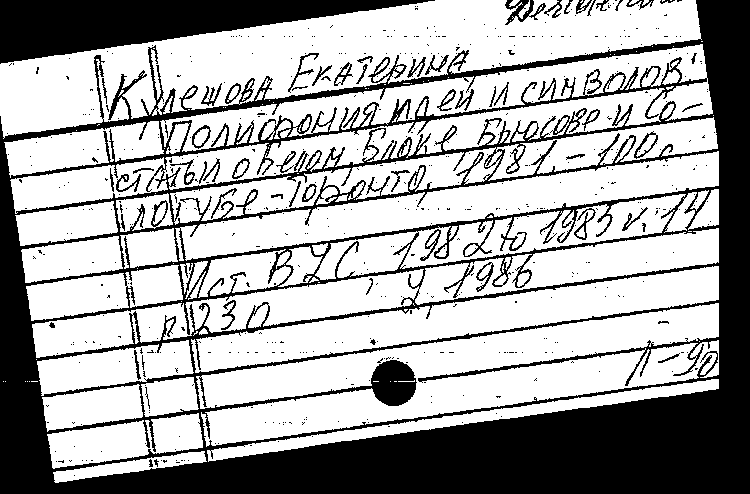 Кулешова, Екатерина
Полифония идей и символов:
статьи о Белом, Блоке, Брюсове и Со-
логубе.-Торонто, 1981.-100с
Ист. BZC, 1982 to 1985 v. 14
p. 230 У, 1986
Л-90